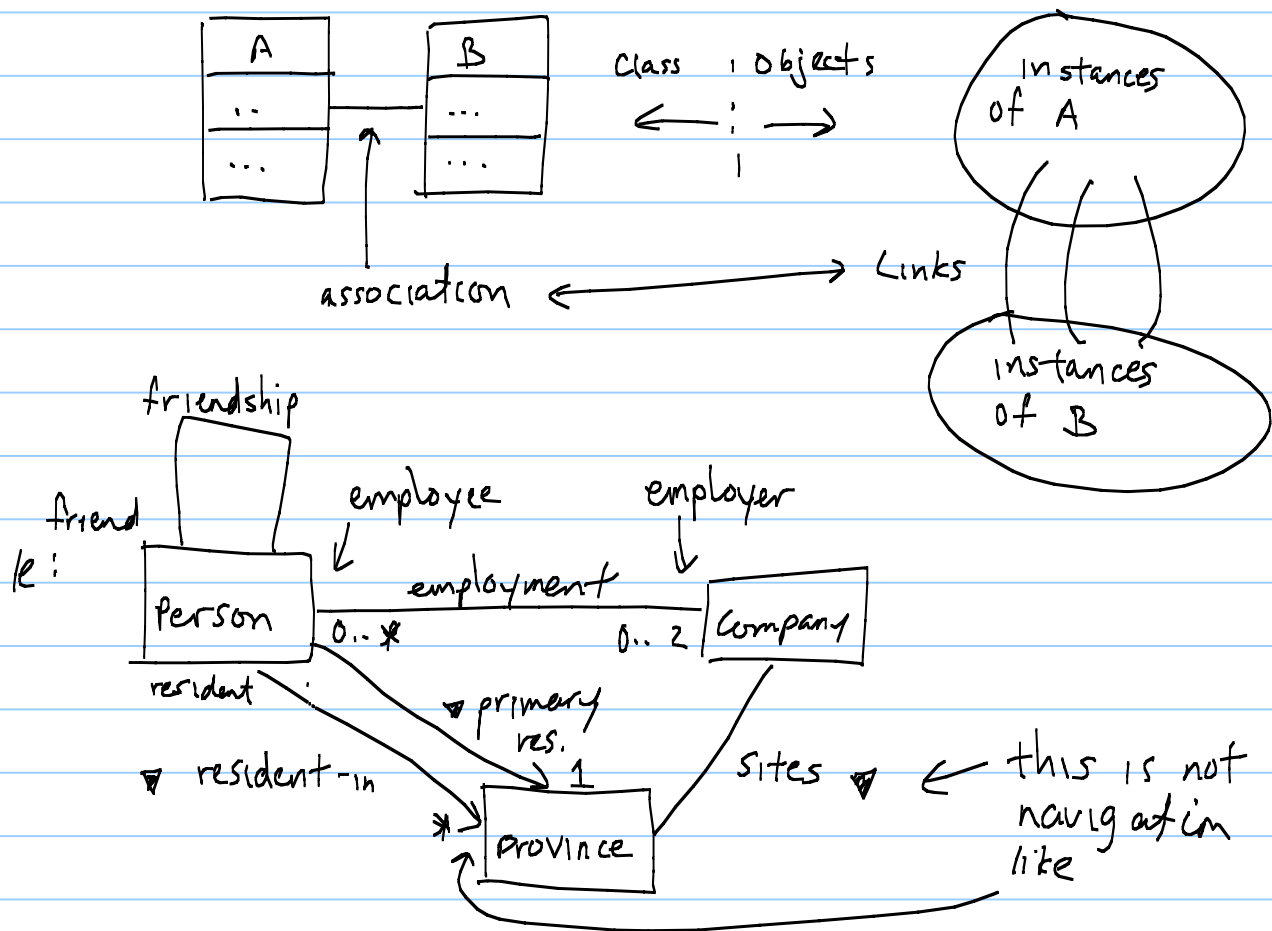 A
B
..
...
...
...
Class ¦ Objects
instances
of A
association
Links
instances
of B
friendship
friend
employee
employer
employment
Person
0..*
0..2
Company
resident
▼ primary
res.
▼ resident-in
1
sites ▼
this is not
navigation
like
*
Province